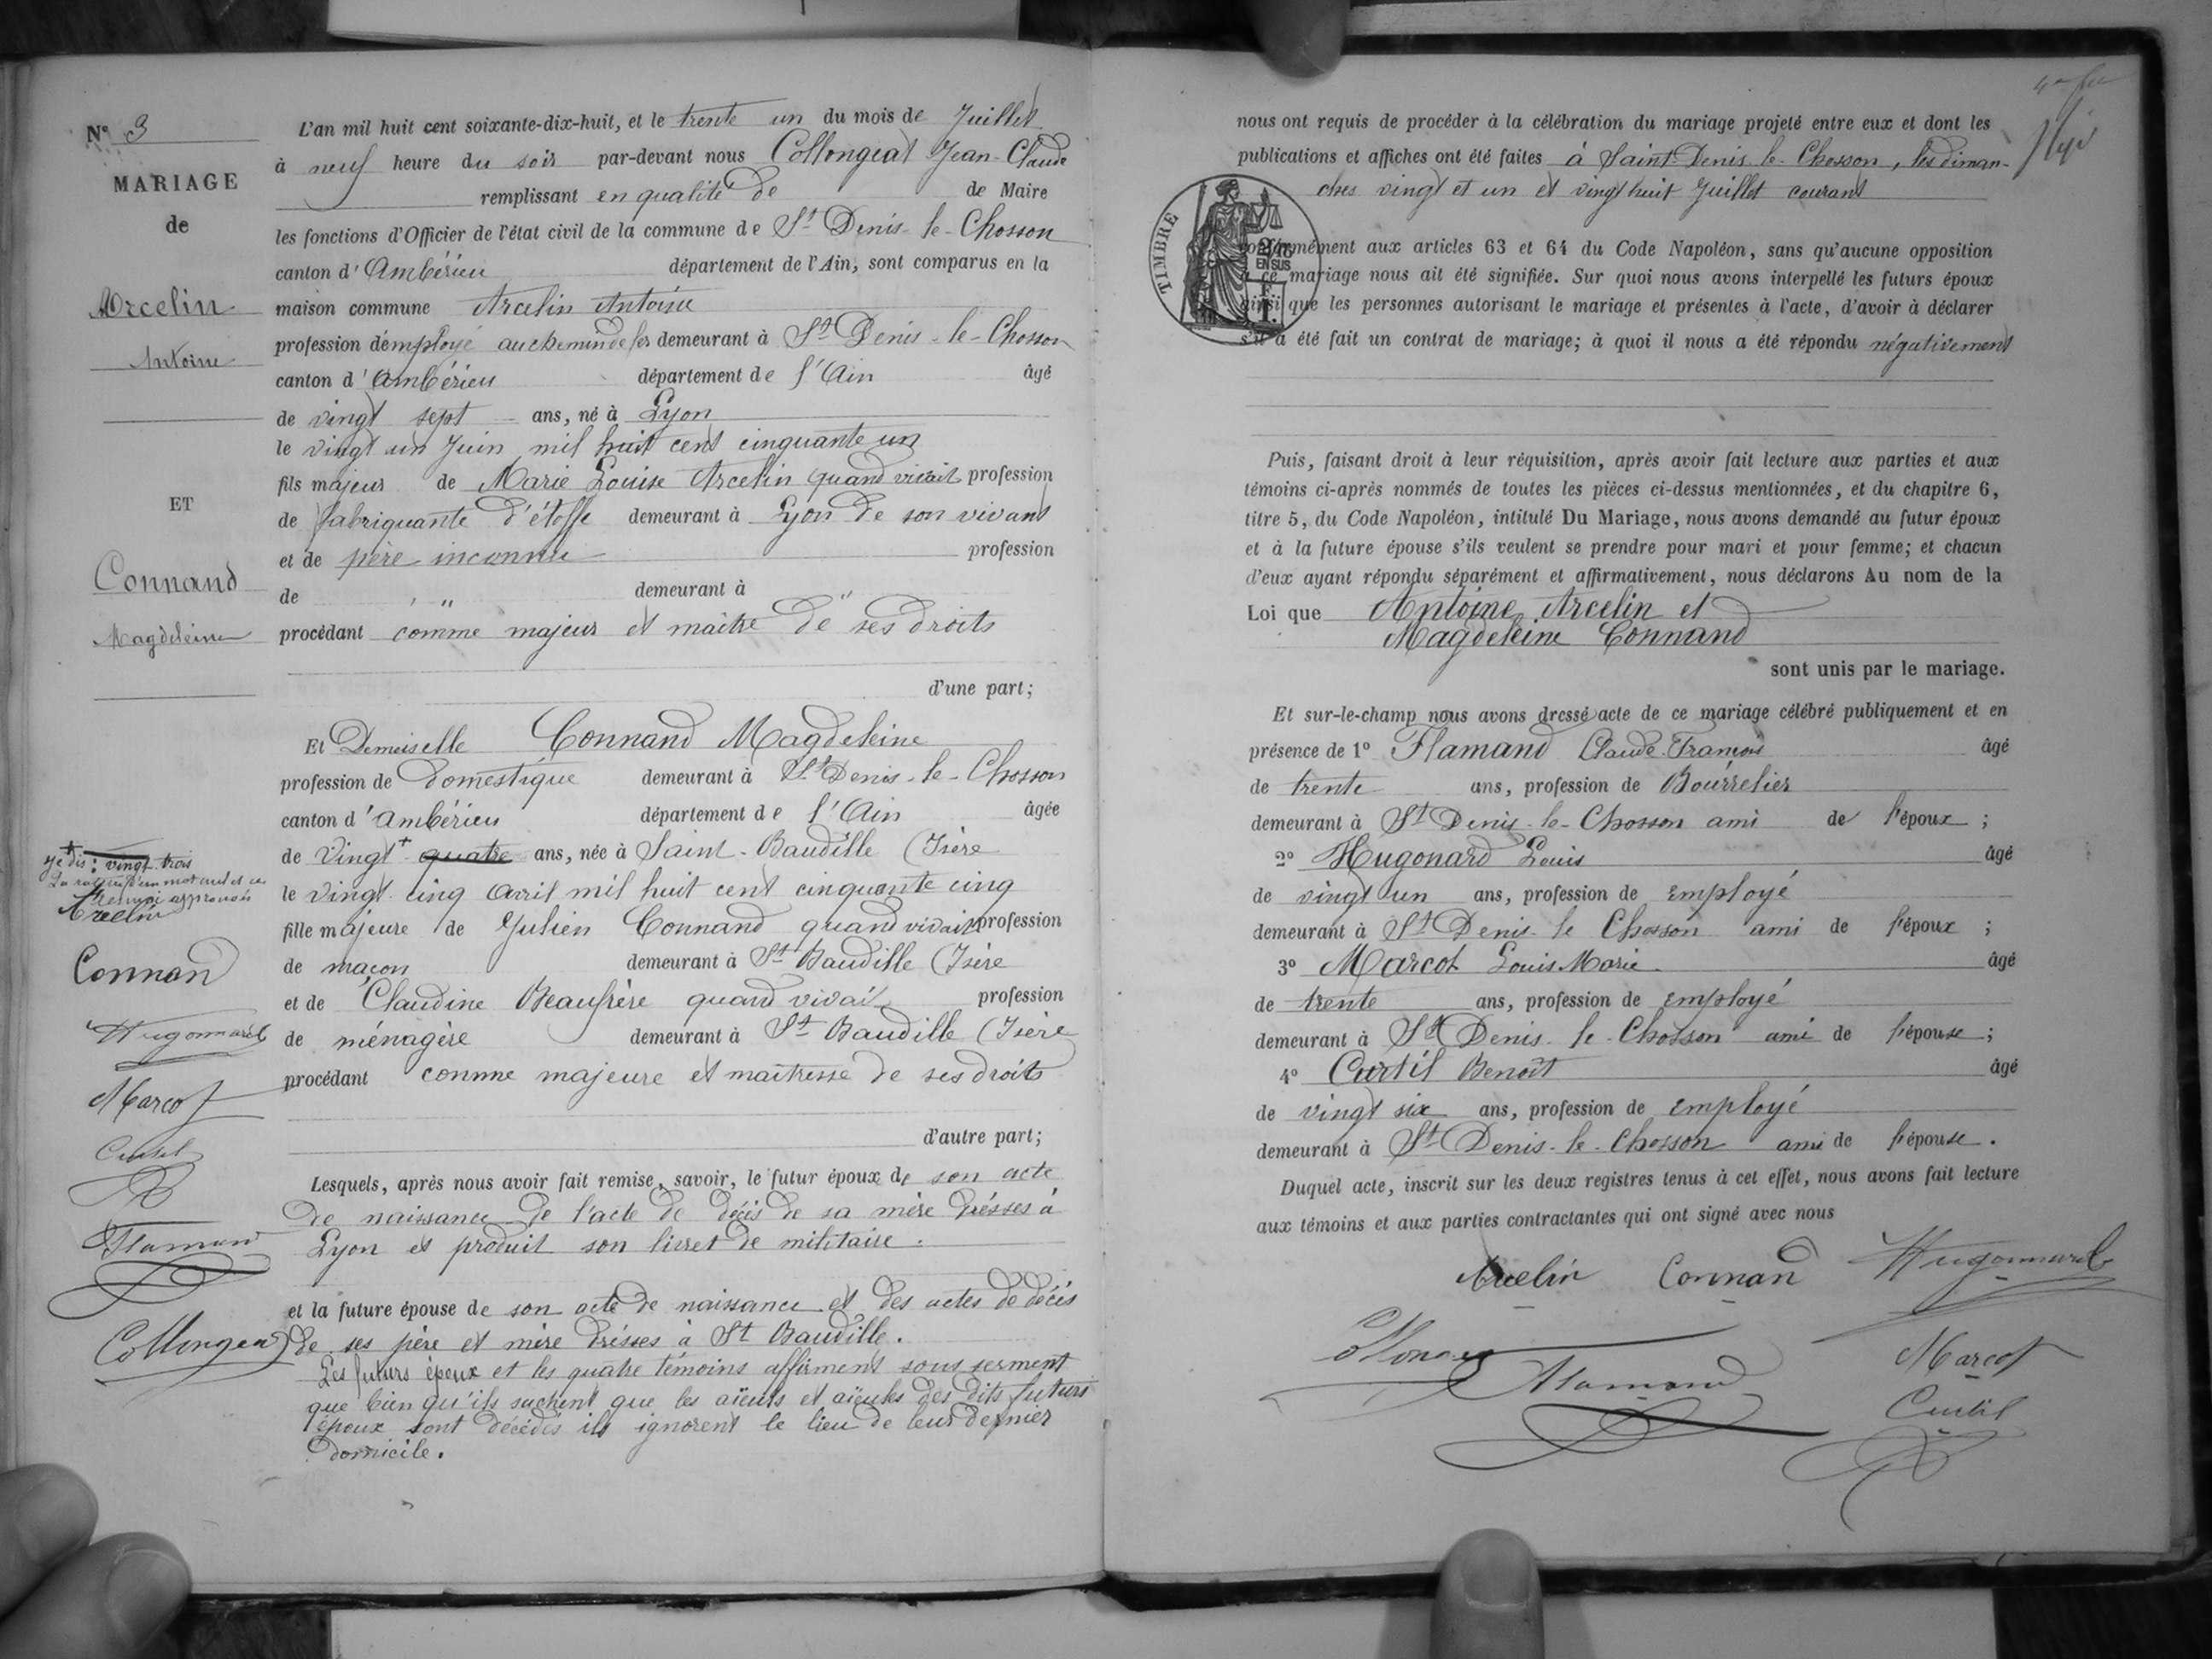 N° 3
MARIAGE
de
Arcelin
Antoine
ET
Connand
Magdeleine
L'an mil huit cent soixante-dix-huit, et le trente un du mois de Juillet
à neuf heure du soir par-devant nous Collongeat Jean-Claude
remplissant en qualité de de Maire
les fonctions d'Officier de l'état civil de la commune de St Denis-le-Chosson
canton d'Ambérieu département de l'Ain, sont comparus en la
maison commune Arcelin Antoine
profession d'employé au chemin de fer demeurant à St Denis-le-Chosson
canton d'Ambérieu département de l'Ain âgé
de vingt sept ans, né à Lyon
le vingt un Juin mil huit cent cinquante un
fils majeur de Marie Louise Arcelin quand vivait profession
de fabriquante d'étoffe demeurant à Lyon de son vivant
et de père inconnu profession
de " demeurant à "
procédant comme majeur et maître de ses droits
d'une part;
Et Demoiselle Connand Magdeleine
profession de domestique demeurant à St Denis-le-Chosson
canton d'Ambérieu département de l'Ain âgée
de Vingt + quatre ans, née à Saint-Baudille (Isère
le vingt cinq avril mil huit cent cinquante cinq
fille majeure de Julien Connand quand vivait profession
de maçon demeurant à St Baudille (Isère
et de Claudine Beaufrère quand vivait profession
de ménagère demeurant à St Baudille (Isère
procédant comme majeure et maîtresse de ses droits
d'autre part;
Lesquels, après nous avoir fait remise, savoir, le futur époux de son acte
de naissance de l'acte de décès de sa mère dressés à
Lyon et produit son livret de militaire.
et la future épouse de son acte de naissance et des actes de décès
de ses père et mère dressés à St Baudille.
Les futurs époux et les quatre témoins affirment sous serment
que bien qu'ils sachent que les aïeuls et aïeules des dits futurs
époux sont décédés ils ignorent le lieu de leur dernier
domicile.
+
je dis: vingt trois
Arcelin
Connan
Hugonnard
Marcot
Curtil
Flamand
Collongea
nous ont requis de procéder à la célébration du mariage projeté entre eux et dont les
publications et affiches ont été faites à Saint Denis-le-Chosson, les diman-
ches vingt et un et vingt huit Juillet courant
TIMBRE
2/10
EN SUS
conformément aux articles 63 et 64 du Code Napoléon, sans qu'aucune opposition
à ce mariage nous ait été signifiée. Sur quoi nous avons interpellé les futurs époux
ainsi que les personnes autorisant le mariage et présentes à l'acte, d'avoir à déclarer
s'il a été fait un contrat de mariage; à quoi il nous a été répondu négativement
Puis, faisant droit à leur réquisition, après avoir fait lecture aux parties et aux
témoins ci-après nommés de toutes les pièces ci-dessus mentionnées, et du chapitre 6,
titre 5, du Code Napoléon, intitulé Du Mariage, nous avons demandé au futur époux
et à la future épouse s'ils veulent se prendre pour mari et pour femme; et chacun
d'eux ayant répondu séparément et affirmativement, nous déclarons Au nom de la
Loi que Antoine Arcelin et
Magdeleine Connand
sont unis par le mariage.
Et sur-le-champ nous avons dressé acte de ce mariage célébré publiquement et en
présence de 1° Flamand Claude-François âgé
de trente ans, profession de Bourrelier
demeurant à St Denis-le-Chosson ami de l'époux ;
2° Hugonard Louis âgé
de vingt un ans, profession de employé
demeurant à St Denis-le Chosson ami de l'époux ;
3° Marcot Louis Marie âgé
de trente ans, profession de employé
demeurant à St Denis-le-Chosson ami de l'épouse ;
4° Curtil Benoît âgé
de vingt six ans, profession de employé
demeurant à St Denis-le-Chosson ami de l'épouse.
Duquel acte, inscrit sur les deux registres tenus à cet effet, nous avons fait lecture
aux témoins et aux parties contractantes qui ont signé avec nous
Arcelin Connan Hugonnard
Flamand Marcot
Curtil